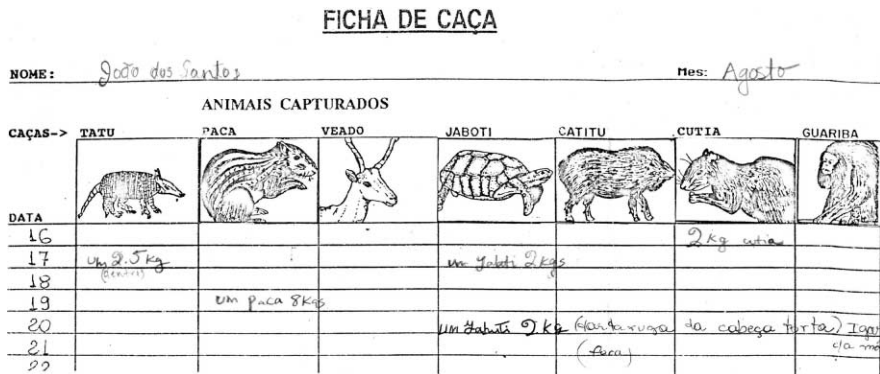 FICHA DE CAÇA
NOME: João dos Santos Mes: Agosto
ANIMAIS CAPTURADOS
CAÇAS-> TATU PACA VEADO JABOTI CATITU CUTIA GUARIBA
DATA
16 2 Kg cutia
17 um 2.5 kg um Jaboti 2 kgs
18
19 um paca 8 Kgs
20 um Jabuti 2 kg da cabeça torta)
21
22